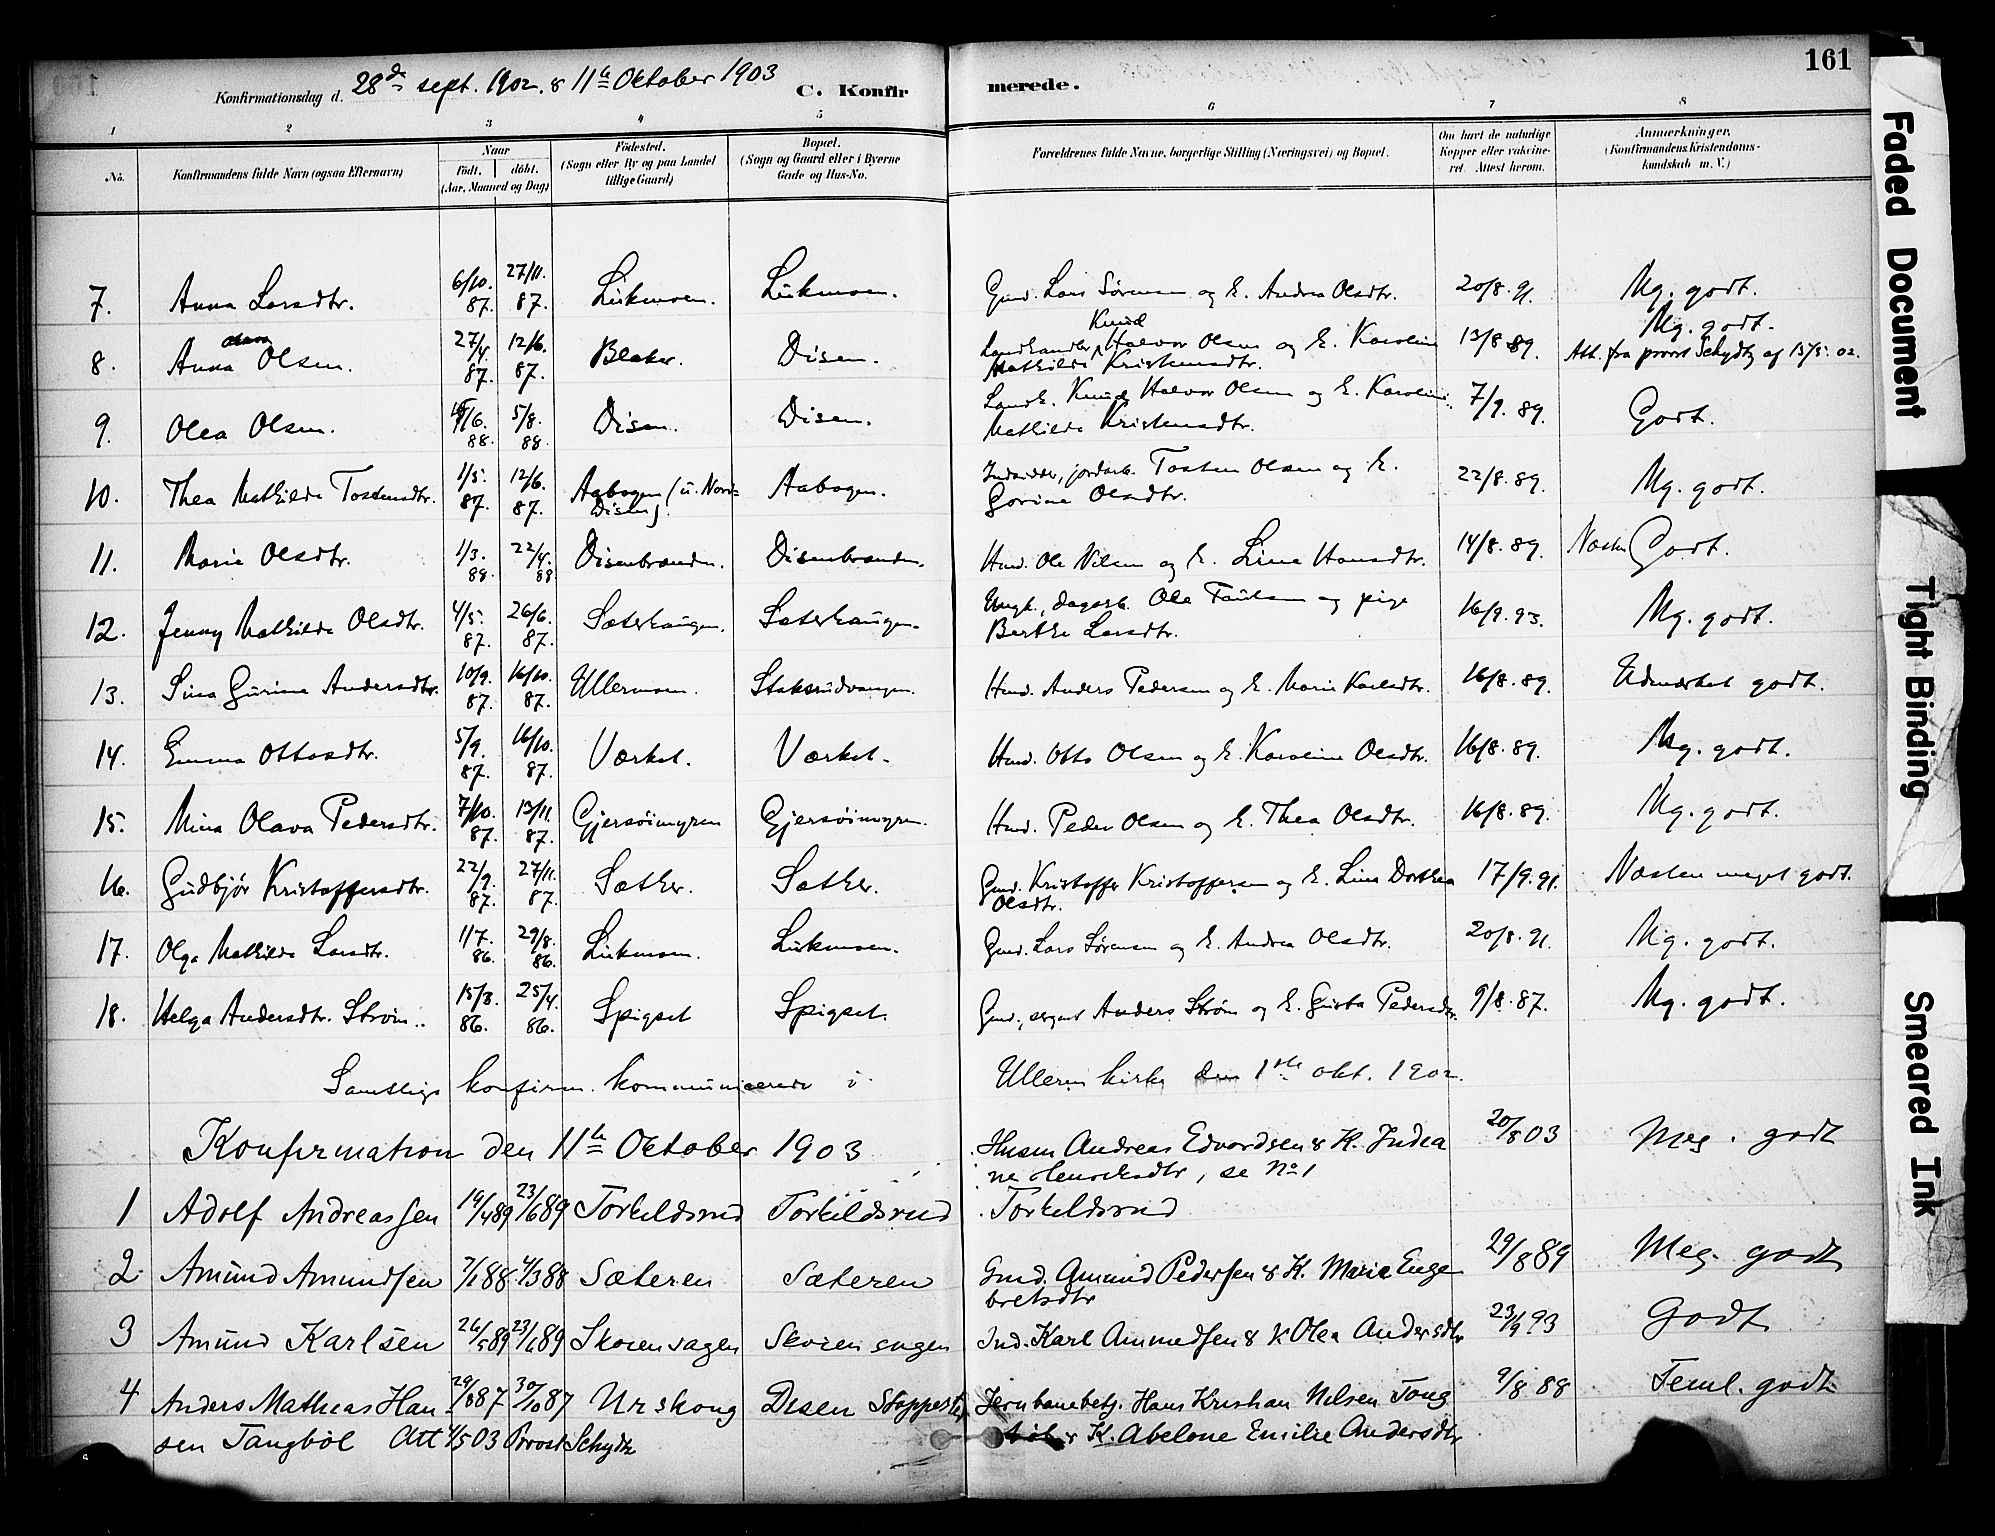 161
Konfirmationsdag d. 28de sept. 1902. & 11te Oktober 1903
C. Konfirmerede.
1 2 3 4 5 6 7 8
No. Konfirmandens fulde Navn (ogsaa Efternavn) Naar Födt. döbt. (Aar, Maaned og Dag) Födested. (Sogn eller By og paa Landet tillige Gaard) Bopæl. (Sogn og Gaard eller i Byerne Gade og Hus-No. Forældrenes fulde Navne, borgerlige Stilling (Næringsvei) og Bopæl. Om havt de naturlige Kopper eller vakcineret. Attest herom. Anmærkninger. (Konfirmandens Kristendomskundskab m. V.)
7. Anna Larsdtr. 6/10. 87. 27/11. 87. Likmoen. Likmoen. Gmd. Lars Sørensen og E. Andrea Olsdtr. 20/8. 91. Mg. godt.
8. Anna Olava Olsen. 27/4. 87. 12/6. 87. Blaker. Disen. Landhandler Knud Halvor Olsen og E. Karoline Mathilde Kristensdtr. 13/8 89. Mg. godt. Att. fra provst Schydtz af 15/5. 02.
9. Olea Olsen. /6. 88. 5/8. 88. Disen. Disen. Landh. Knud Halvor Olsen og E. Karoline Mathilde Kristensdtr. 7/9. 89. Godt.
10. Thea Mathilde Tostensdtr. 1/5. 87. 12/6. 87. Aabogen (u. Nord-Disen). Aabogen. Indsidder, jordarb. Tosten Olsen og E. Gorine Olsdtr. 22/8. 89. Mg. godt.
11. Marie Olsdtr. 1/3. 88. 22/4. 88 Disenbraaden. Disenbraaden. Hmd. Ole Nilsen og E. Lina Hansdtr. 14/8. 89. Næsten Godt.
12. Jenny Mathilde Olsdtr. 4/5. 87. 26/6. 87. Sæterhaugen. Sæterhaugen. Ungk., dagarb. Ole Paulsen og pige Berthe Larsdtr. 16/9. 93. Mg. godt.
13. Sina Gurine Andersdtr. 10/9. 87. 16/10. 87. Ullermoen. Staksrudvangen. Hmd. Anders Pedersen og E. Marie Karlsdtr. 16/8. 89. Udmærket godt.
14. Emma Ottosdtr. 5/9. 87. 16/10. 87. Værket. Værket. Hmd. Otto Olsen og E. Karoline Olsdtr. 16/8. 89. Mg. godt.
15. Mina Olava Pedersdtr. 7/10. 87. 13/11. 87. Gjersøimyren Gjersøimyren. Hmd. Peder Olsen og E. Thea Olsdtr. 16/8. 89. Mg. godt.
16. Gudbjør Kristoffersdtr. 22/9. 87. 27/11. 87. Sæther. Sæther. Gmd. Kristoffer Kristoffersen og E. Lina Dorthea Olsdtr. 17/9. 91. Næsten meget godt.
17. Olga Mathilde Larsdtr. 1/7. 86. 29/8. 86. Likmoen. Likmoen. Gmd. Lars Sørensen og E. Andrea Olsdtr. 20/8. 91. Mg. godt.
18. Helga Andersdtr. Strøm. 15/3. 86. 25/4. 86. Spigset Spigset. Gmd., sergent Anders Strøm og E. Gusta Pedersdtr. 9/8. 87. Mg. godt.
Samtlige konfirm. kommunicerede i Ullern kirke den 1ste okt. 1902.
Konfirmation den 11te Oktober 1903
1 Adolf Andreassen 19/4 89 23/6 89 Torkildsrud Torkildsrud Husm Andreas Edvardsen & K. Indiane Henriksdtr, se No 1 Torkildsrud 20/8 03 Meg. godt
2 Amund Amundsen 7/1 88 4/3 88 Sæteren Sæteren Gmd. Amund Pedersen & K. Marie Engebretsdtr 29/8 89 Meg. godt
3 Amund Karlsen 26/5 89 23/6 89 Skoiensagen Ind. Karl Ammundsen & K Olea Andersdtr 23/9 93 Godt
4 Anders Mathias Hansen Tangböl 29/8 87 30/10 87 Urskoug Disen Stoppested Jernbanebetj. Hans Kristian Nilsen Tangböl & K. Abelone Emilie Andersdtr 9/8 88 Teml. godt
Att 4/5 03 Provst Schydtz
Faded Document
Tight Binding
Smeared Ink